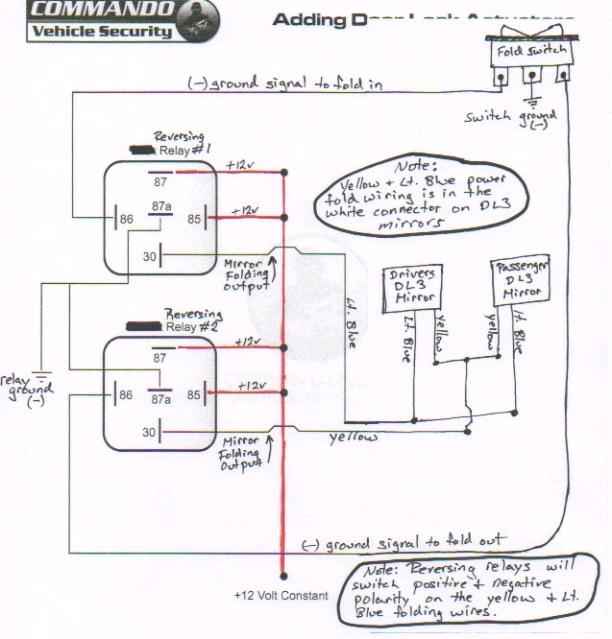 COMMANDO
Vehicle Security
Adding
Fold switch
(-) ground signal to fold in
switch ground
(-)
Reversing
Relay #1
87
+12v
87a
86
85
+12v
30
Mirror
Folding
output
Note:
Yellow + Lt. Blue power
fold wiring is in the
white connector on DL3
mirrors
Drivers
DL3
Mirror
Passenger
DL3
Mirror
Lt. Blue
Lt. Blue
yellow
yellow
Lt. Blue
Reversing
Relay #2
87
+12v
relay
ground
(-)
86
87a
85
+12v
30
Mirror
Folding
Output
yellow
(-) ground signal to fold out
+12 Volt Constant
Note: Reversing relays will
switch positive + negative
polarity on the yellow + Lt.
Blue folding wires.